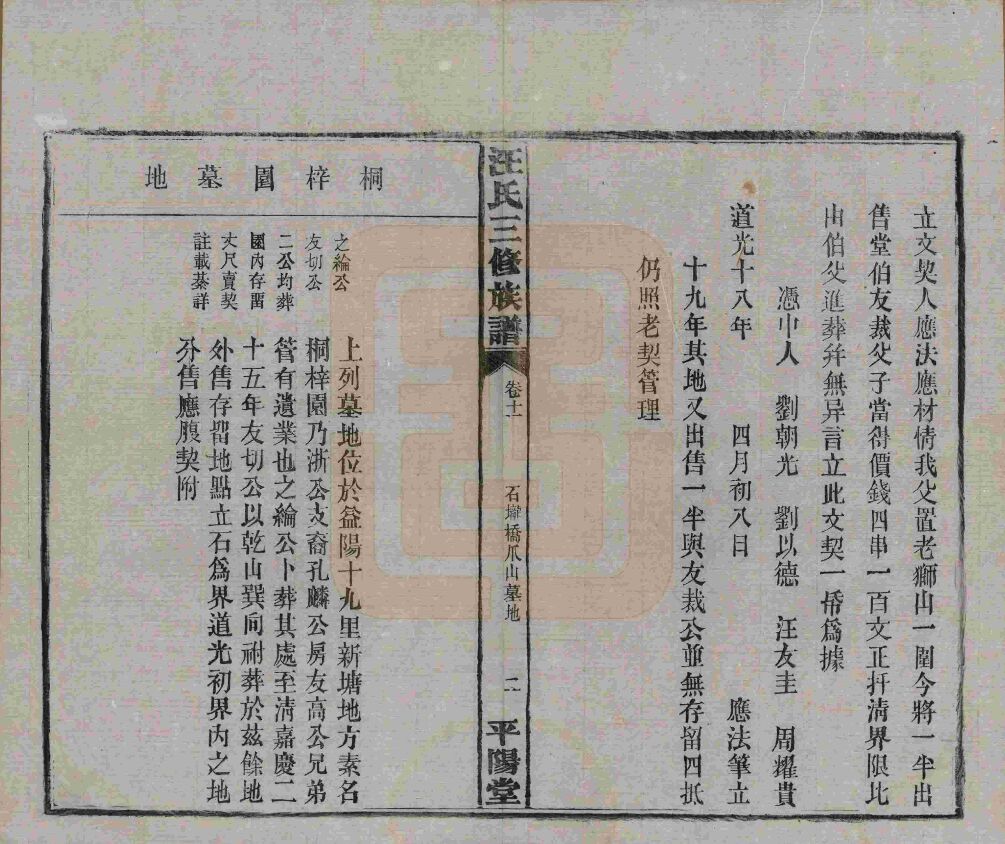 立文契人應法應材情我父置老獅山一圍今將一半出
售堂伯友裁父子當得價錢四串一百文正扞淸界限比
由伯父進葬并無异言立此文契一帋爲據
憑中人 劉朝光 劉以德 汪友圭 周耀貴
道光十八年 四月初八日 應法筆立
十九年其地又出售一半與友裁公並無存留四抵
仍照老契管理
汪氏三修族譜 卷十一 石壋橋爪山墓地 二 平陽堂
桐梓園墓地
之綸公
友切公
二公均葬
園內存畱
丈尺賣契
註載綦詳
上列墓地位於益陽十九里新塘地方素名
桐梓園乃浙公支裔孔麟公房友高公兄弟
管有遺業也之綸公卜葬其處至淸嘉慶二
十五年友切公以乾山巽向祔葬於茲餘地
外售存畱地點立石爲界道光初界內之地
外售應腹契附